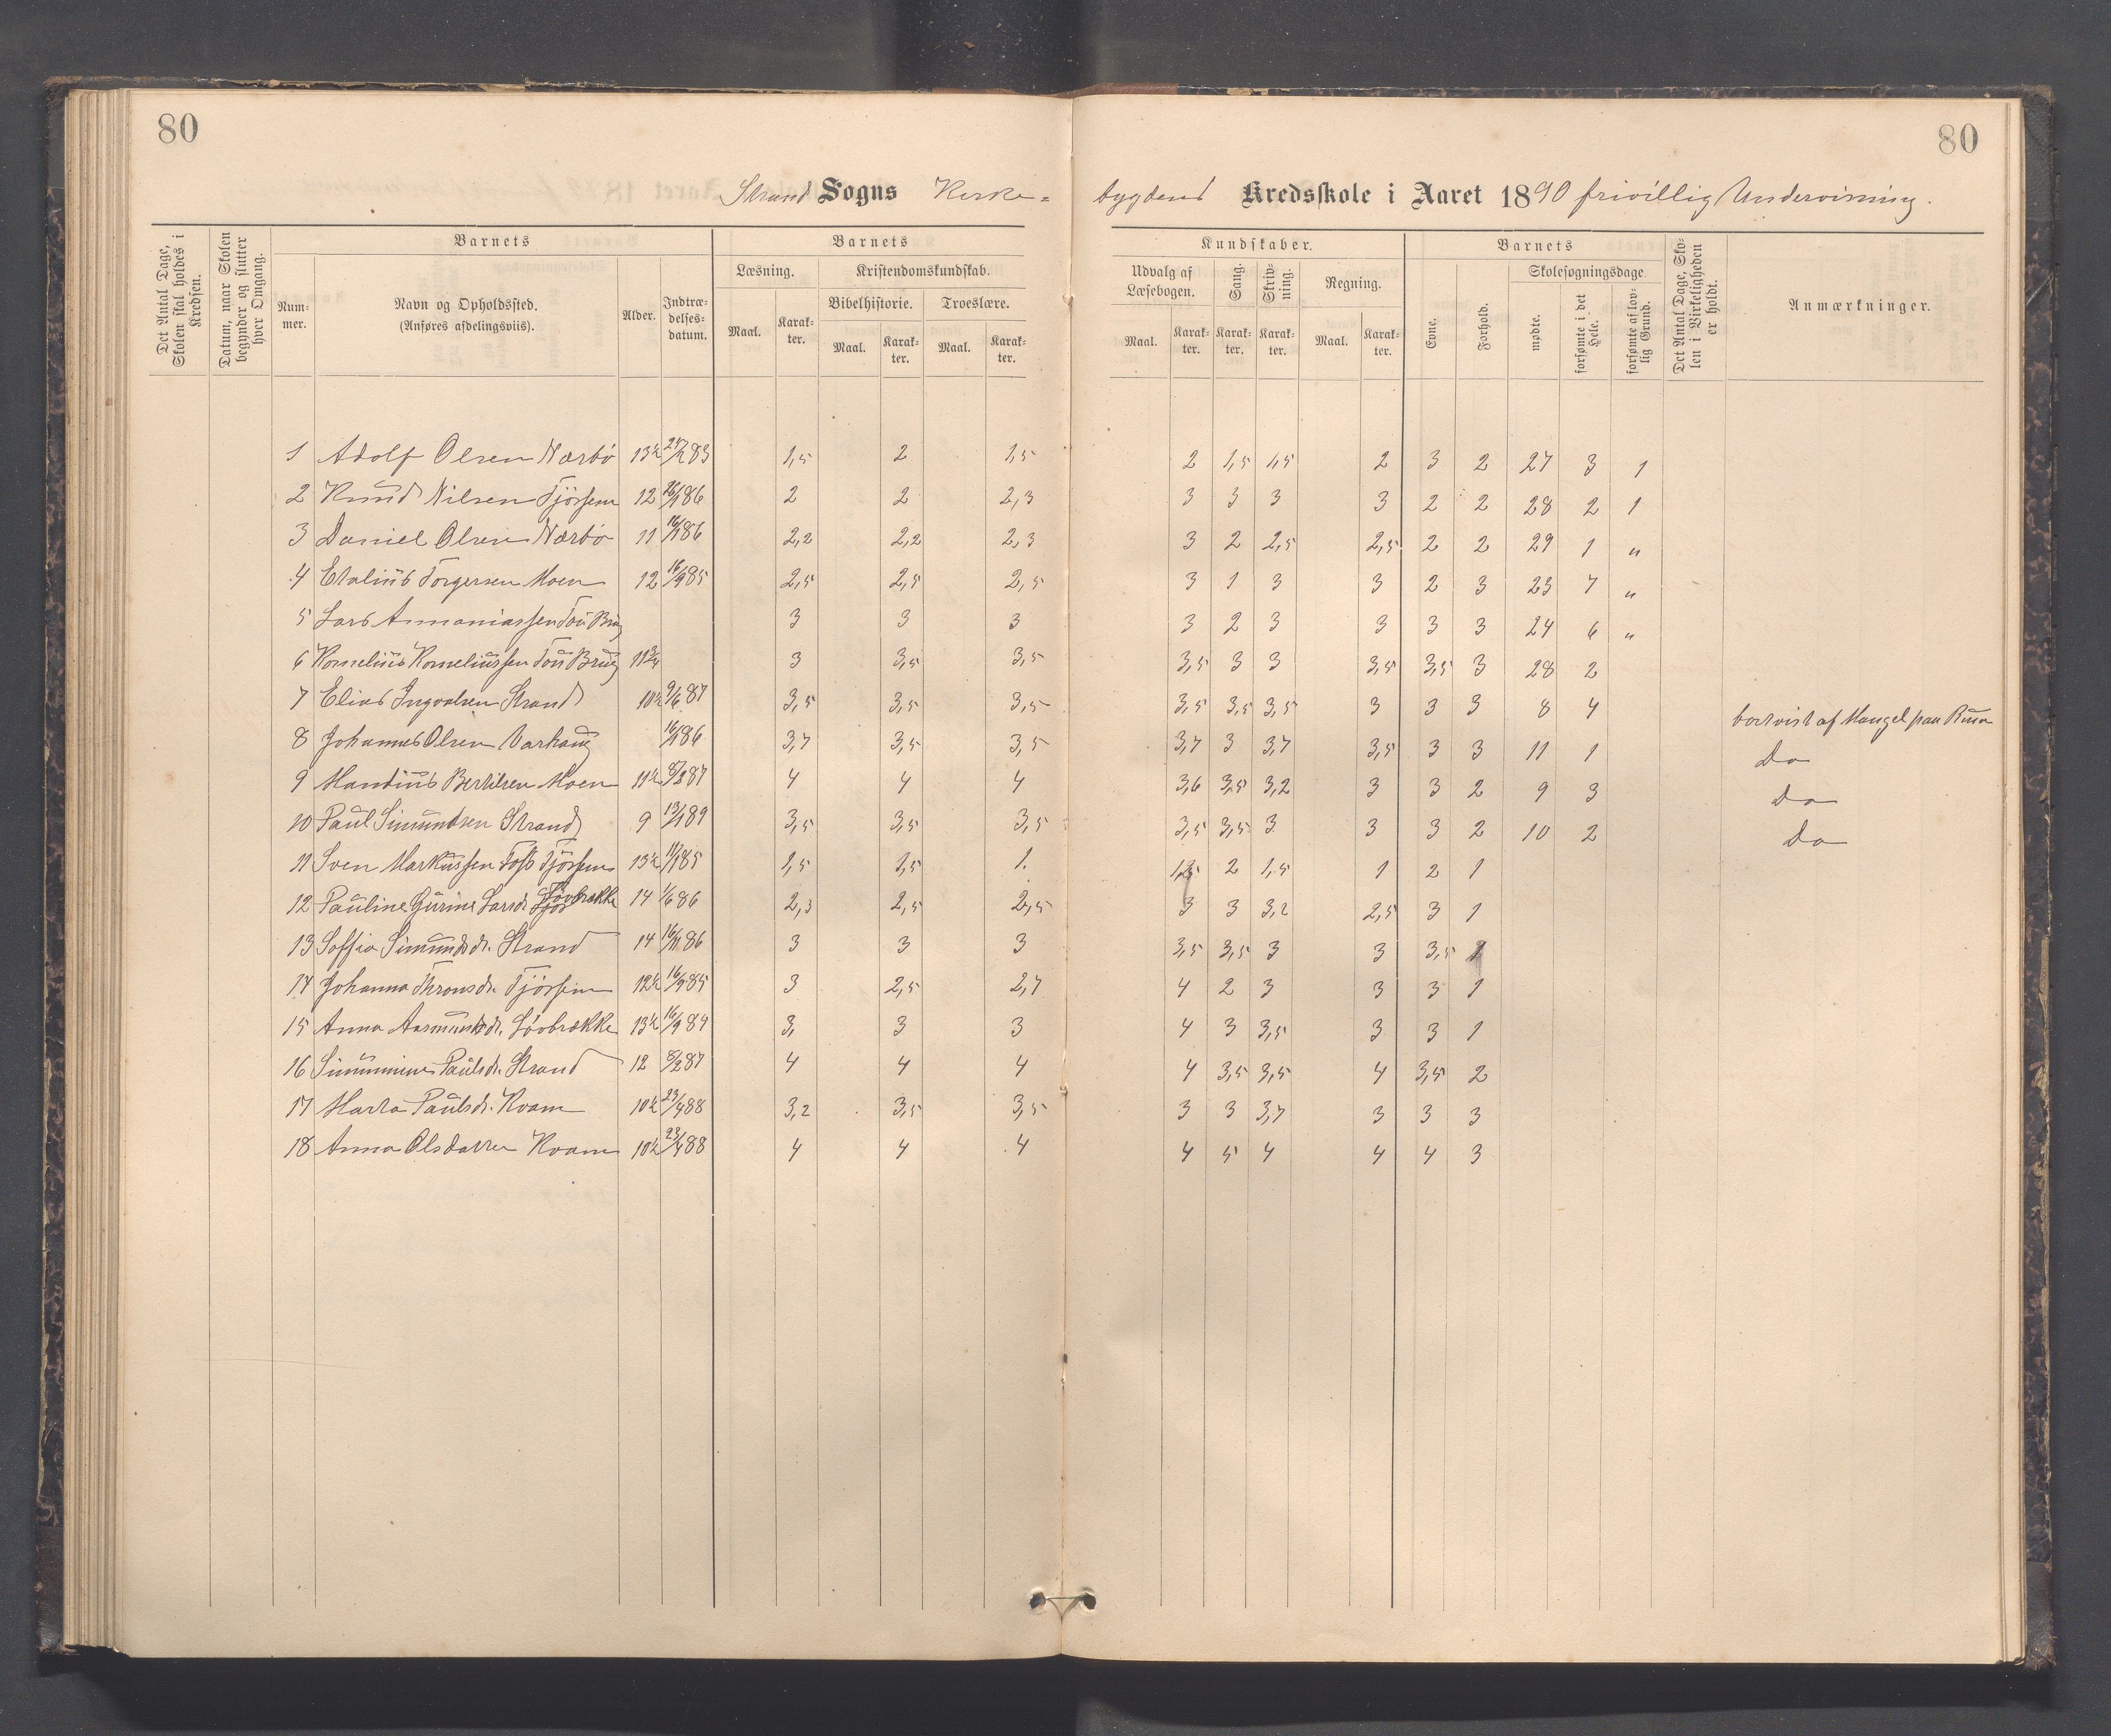 80
80
Strand Sogns Kirke-
bygdens Kredsskole i Aaret 1890 frivillig Undervisning.
Det Antal Dage, Skolen skal holdes i Kredsen.
Datum, naar Skolen begynder og slutter hver Omgang.
Barnets
Num-
mer.
Navn og Opholdssted.
(Anføres afdelingsviis).
Alder.
Indtræ-
delses-
datum.
Barnets
Læsning.
Maal.
Karak-
ter.
Kristendomskundskab.
Bibelhistorie.
Troeslære.
Maal.
Karak-
ter.
Maal.
Karak-
ter.
Kundskaber.
Udvalg af
Læsebogen.
Maal.
Karak-
ter.
Sang.
Karak-
ter.
Skriv-
ning.
Karak-
ter.
Regning.
Maal.
Karak-
ter.
Barnets
Evne.
Forhold.
Skolesøgningsdage.
mødte.
forsømte i det Hele.
forsømte af lov-
lig Grund.
Det Antal Dage, Sko-
len i Virkeligheden
er holdt.
Anmærkninger.
1 Adolf Olsen Nærbø 13½ 83 1,5 2 1,5 2 1,5 1,5 2 3 2 27 3 1
2 Knud Nilsen Tjøssem 12 16/1 86 2 2 2,3 3 3 3 3 2 2 28 2 1
3 Daniel Olsen Nærbø 11 16/1 86 2,2 2,2 2,3 3 2 2,5 2,5 2 2 29 1 "
4 Torgersen Moen 12 16/9 85 2,5 2,5 2,5 3 1 3 3 2 3 23 7 "
5 Lars Annaniassen Tou Brug 3 3 3 3 2 3 3 3 3 24 6 "
6 Kornelius Korneliussen Tou Brug 11¾ 3 3,5 3,5 3,5 3 3 3,5 3,5 3 28 2
7 Elias Ingvalsen Strand 10½ 9/6 87 3,5 3,5 3,5 3,5 3,5 3,5 3 3 3 8 4 bortvist af Mangel paa Rum
8 Johannes Olsen Varhaug 16/1 86 3,7 3,5 3,5 3,7 3 3,7 3,5 3 3 11 1 Do
9 Mandius Bertilsen Moen 11½ 87 4 4 4 3,6 3,5 3,2 3 3 2 9 3 Do
10 Paul Simundsen Strand 9 13/1 89 3,5 3,5 3,5 3,5 3,5 3 3 3 2 10 2 Do
11 Sven Markussen Tjøssem 13½ 11/1 85 1,5 1,5 1. 2 1,5 1 2 1
12 Pauline Gurine Larsdr. Løvbrække 14 1/6 86 2,3 2,5 2,5 3 3 3,2 2,5 3 1
13 Soffia Simundsdr. Strand 14 16/11 86 3 3 3 3,5 3,5 3 3 3,5
14 Johanna Thronsdr. Tjøssem 12½ 16/9 85 3 2,5 2,7 4 2 3 3 3 1
15 Anna Aasmundsdr. Løvbrække 13½ 16/9 84 3, 3 3 4 3 3,5 3 3 1
16 Paulsdr. Strand 12 8/2 87 4 4 4 4 3,5 3,5 4 3,5 2
17 Marta Paulsdr. Kvam 10½ 23/4 88 3,2 3,5 3,5 3 3 3,7 3 3 3
18 Anna Olsdatter Kvam 10½ 23/4 88 4 4 4 4 5 4 4 4 3